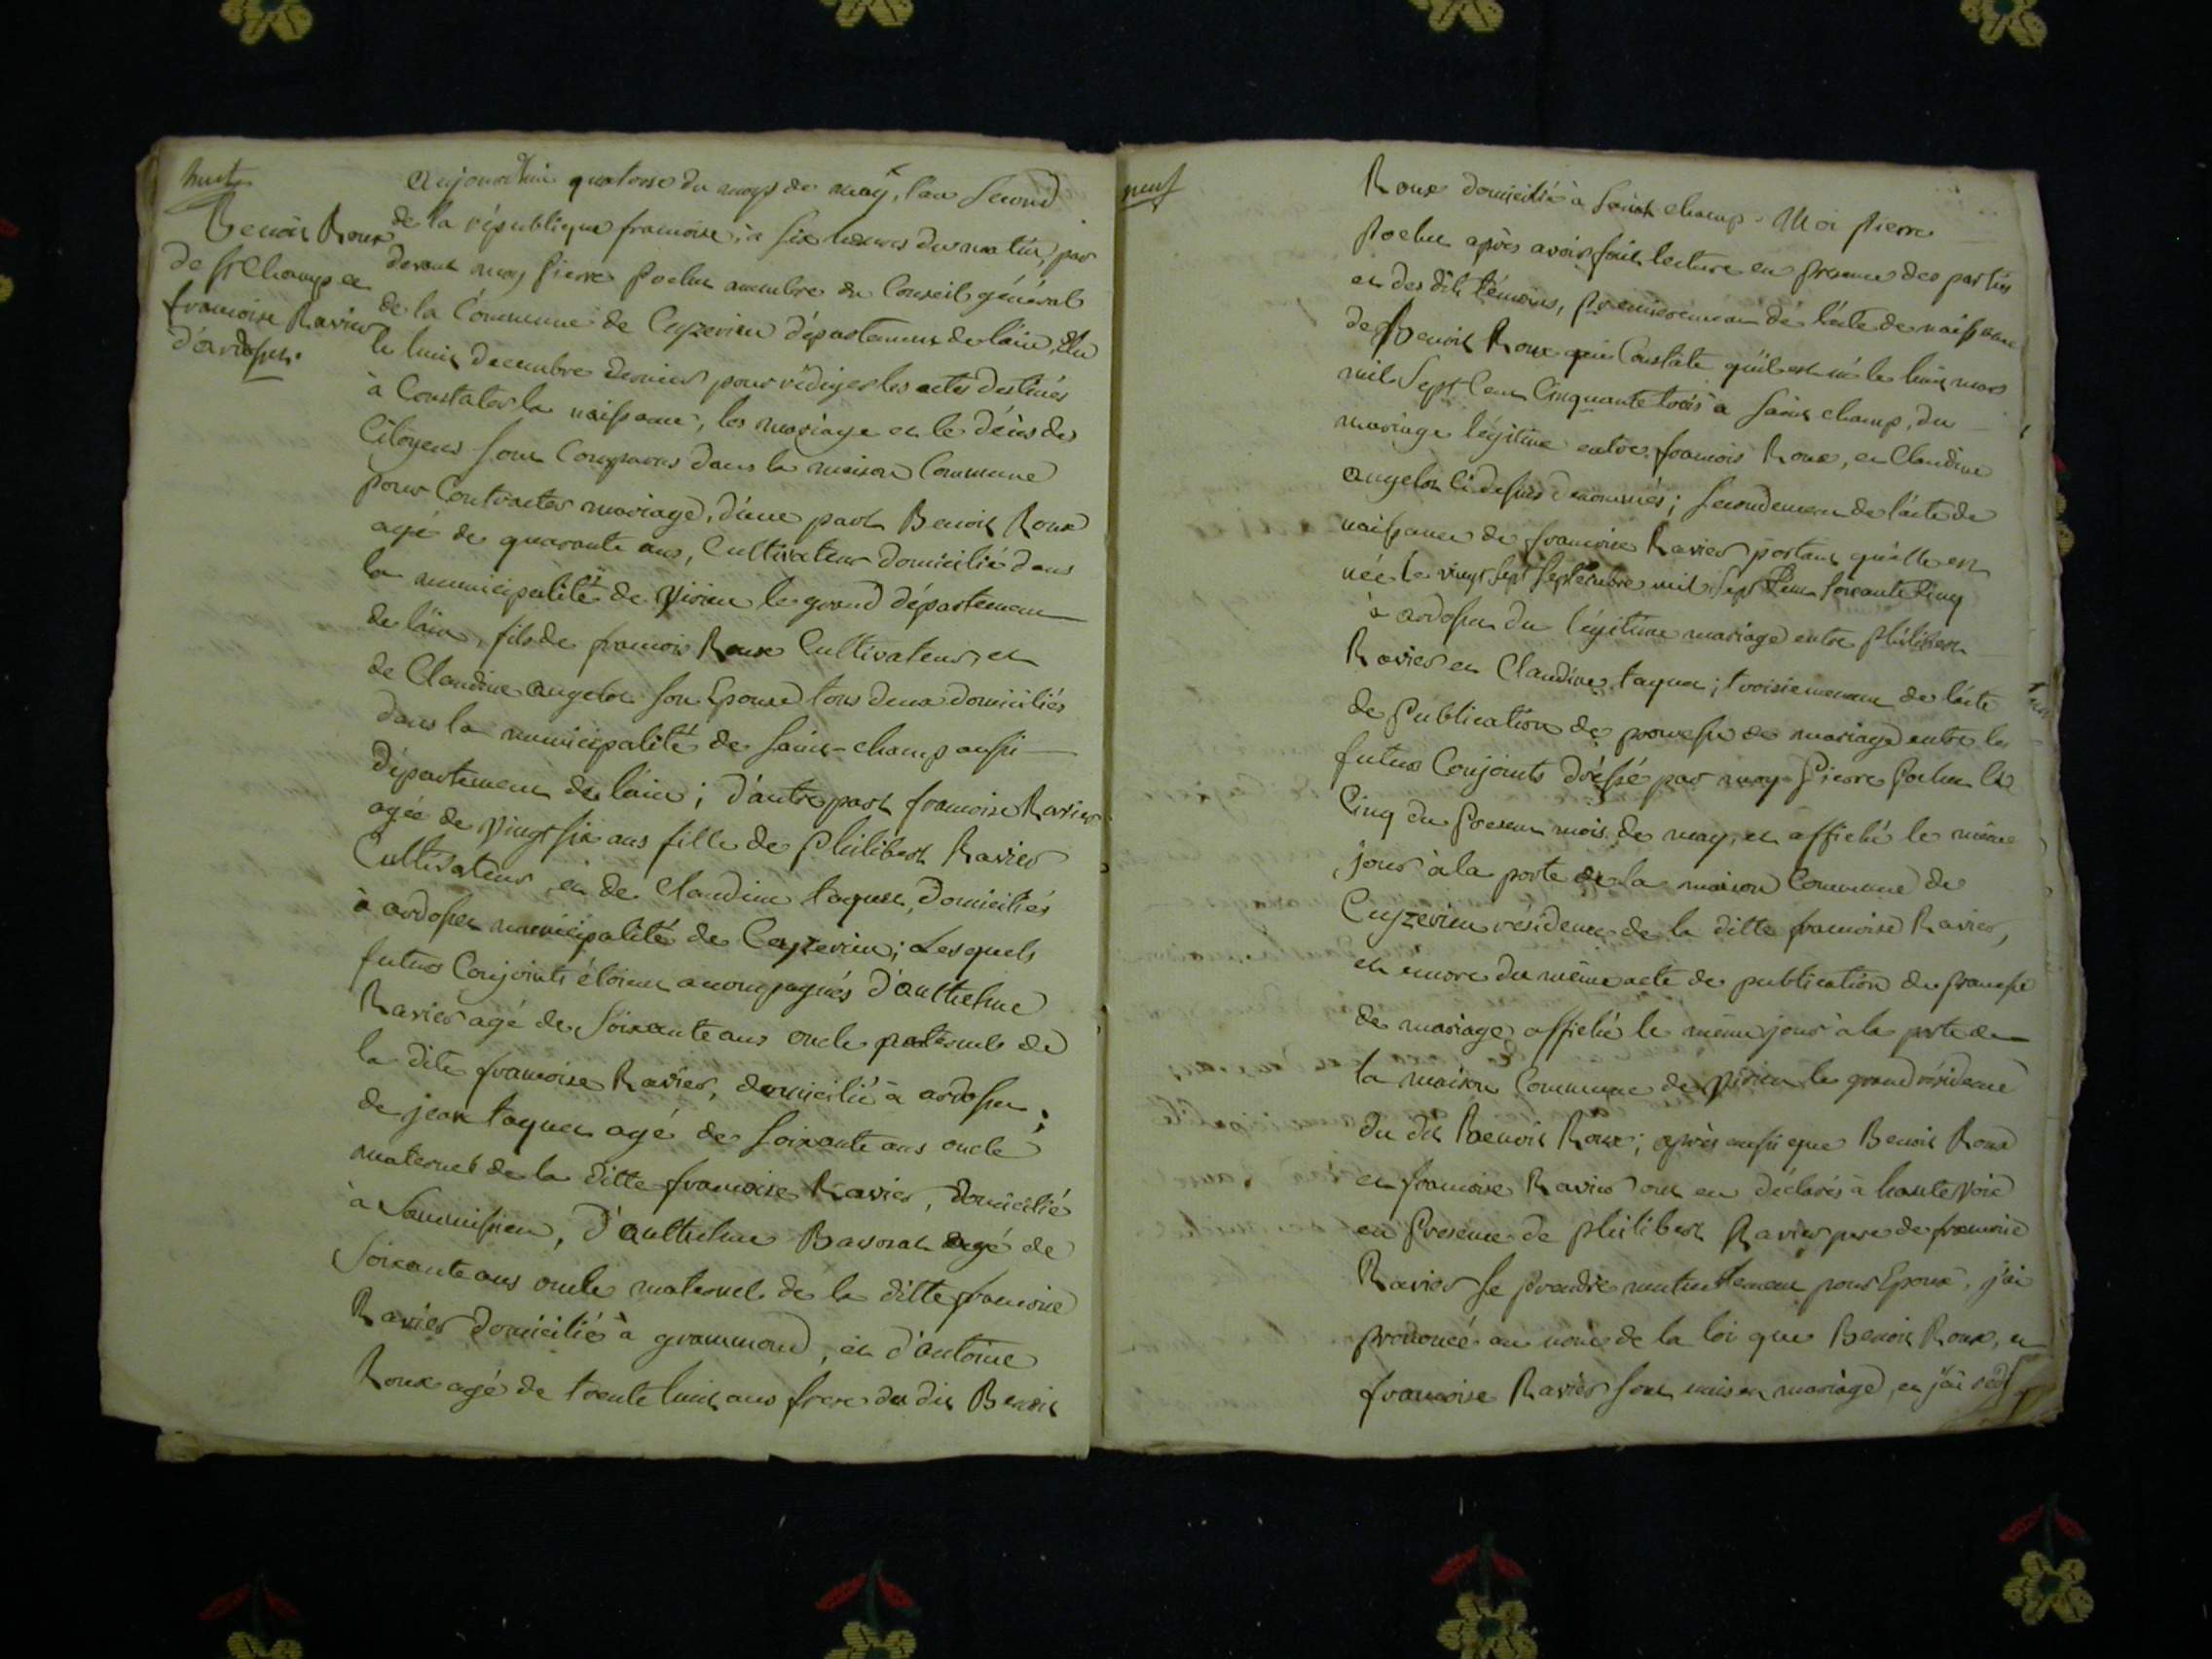 huit
Benoit Roux
de St Champ et
francoise Ravier
d'ardosset.
aujourd'hui quatorse du moys de maÿ, l'an second
de la république francoise, à six heures du matin, par
devant moy Pierre Pochet membre du Conseil général
de la Commune de Ceyzerieu département de lain, élu
le huit decembre dernier pour rédiger les actes destinés
à Constater la naissance, les mariage et le décés des
Citoyens sont Comparus dans la maison Commune
pour Contracter mariage, d'une part Benoit Roux
agé de quarante ans, Cultivateur domicilié dans
la municipalité de Virieu le grand département
de lain, fils de francois Roux Cultivateur, et
de Claudine angelot son Epouse tous deux domiciliés
dans la municipalité de saint-champ aussi
département de lain; d'autre part francoise Ravier
agée de vingt six ans fille de Philibert Ravier
Cultivateur, et de Claudine taquet, domiciliés
à ardosset municipalité de Ceyzerieu; Lesquels
futurs Conjoints étoient acompagnés d'anthelme
Ravier agé de soixante ans oncle paternel de
la dite francoise Ravier, domicilié à ardosset;
de jean taquet agé de soixante ans oncle
maternel de la ditte francoise Ravier, domicilié
à Sammissieu, d'anthelme Bavorat agé de
soixante ans oncle maternel de la ditte francoise
Ravier domicilié à grammond, et d'antoine
Roux agé de trente huit ans frere du dit Benoit
neuf
Roux domicilié à saint champ. Moi pierre
Pochet après avoir fait lecture en presence des parties
et des dits témoins, premierement de l'acte de naissance
de Benoit Roux qui Constate qu'il est né le huit mars
mil sept Cent Cinquante trois à saint champ, du
mariage légitime entre francois Roux, et Claudine
angelot ci dessus denommés; secondement de l'acte de
naissance de francoise Ravier portant qu'elle est
née le vingt sept septembre mil sept Cent soixante Cinq
à ardosset du légitime mariage entre Philibert
Ravier et Claudine taquet; troisiemement de l'acte
de Publication de promesse de mariage entre les
futurs Conjoints dréssé par moy Pierre Pochet le
Cinq du present mois de may, et affiché le même
jour à la porte de la maison Commune de
Ceyzerieu residence de la ditte francoise Ravier,
et encore du même acte de publication de promesse
de mariage affiché le même jour à la porte de
la maison Commune de Virieu le grand résidence
du dit Benoit Roux; après aussi que Benoit Roux
et francoise Ravier ont eu déclarés à haute voix
en Presence de Philibert Ravier pere de francoise
Ravier se prendre mutuellement pour Epoux, j'ai
prononcé au nom de la loi que Benoit Roux, et
francoise Ravier sont unis en mariage, et j'ai redi